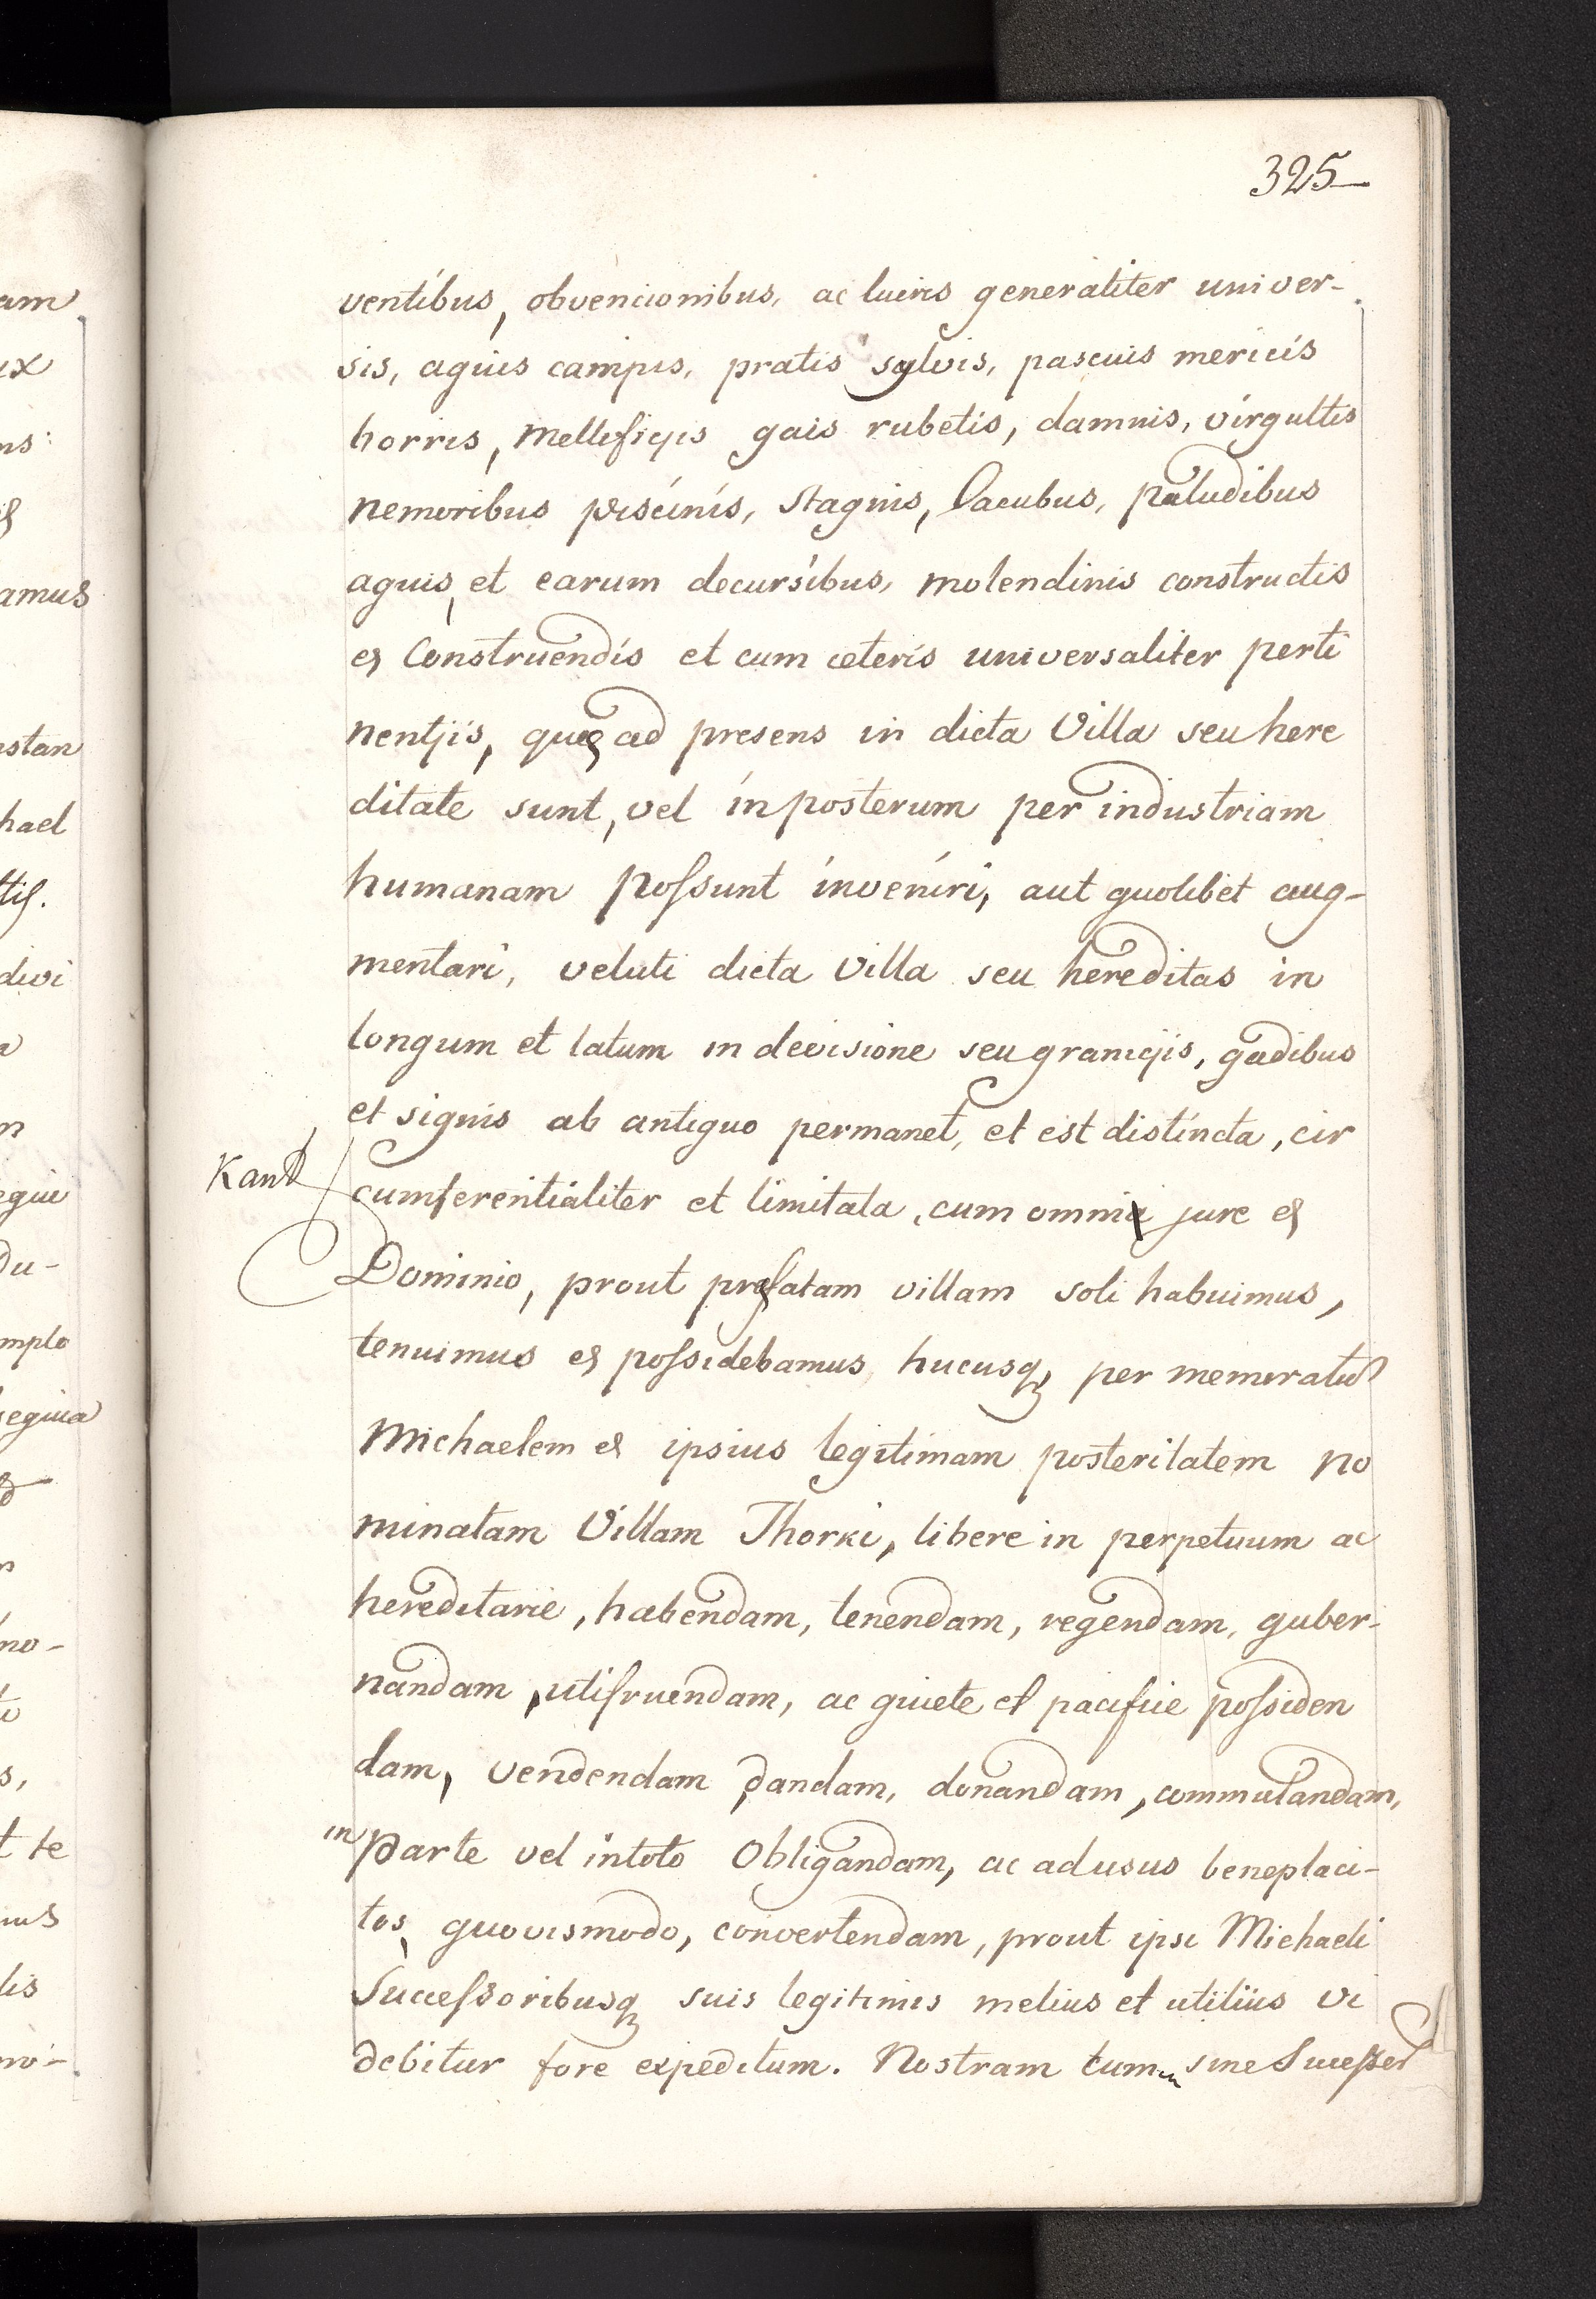 325
ventibus, obvencionibus, ac lucris generaliter univer-
sis, agris campis, pratis sylvis, pascuis mericis
horris, Mellificijs gais rubetis, damnis, virgultis
nemoribus piscinis, Stagnis, Lacubus, paludibus
aquis, et earum decursibus, molendinis constructis
et Construendis et cum ceteris universaliter perti
nentijs, quæ ad presens in dicta Villa seu here
ditate sunt, vel inposterum per industriam
humanam possunt inveniri, aut quolibet aug-
mentari, veluti dicta Villa seu hereditas in
longum et latum in decisione seu granicijs, gadibus
et signis ab antiquo permanet, et est distincta, cir
cumferentialiter et limitata, cum omni jure et
Dominio, prout præfatam villam soli habuimus,
tenuimus et possidebamus hucusq per memoratum
Michaelem et ipsius legitimam posteritatem no
minatam Villam Thorki, libere in perpetuum ac
hereditarie, habendam, tenendam, regendam, guber-
nandam, utifruendam, ac quiete et pacifice possiden
dam, vendendam dandam, donandam, commutandam,
in parte vel intoto Obligandam, ac adusus beneplaci-
tos, quovismodo, convertendam, prout ipsi Michaeli
Successoribusq suis legitimis melius et utilius vi
debitur fore expeditum. Nostram tum sine Successor
am
ux
ns
et
amus
stan
hael
divi
a
n
egui
Du-
mplo
no-
s,
t te
lis